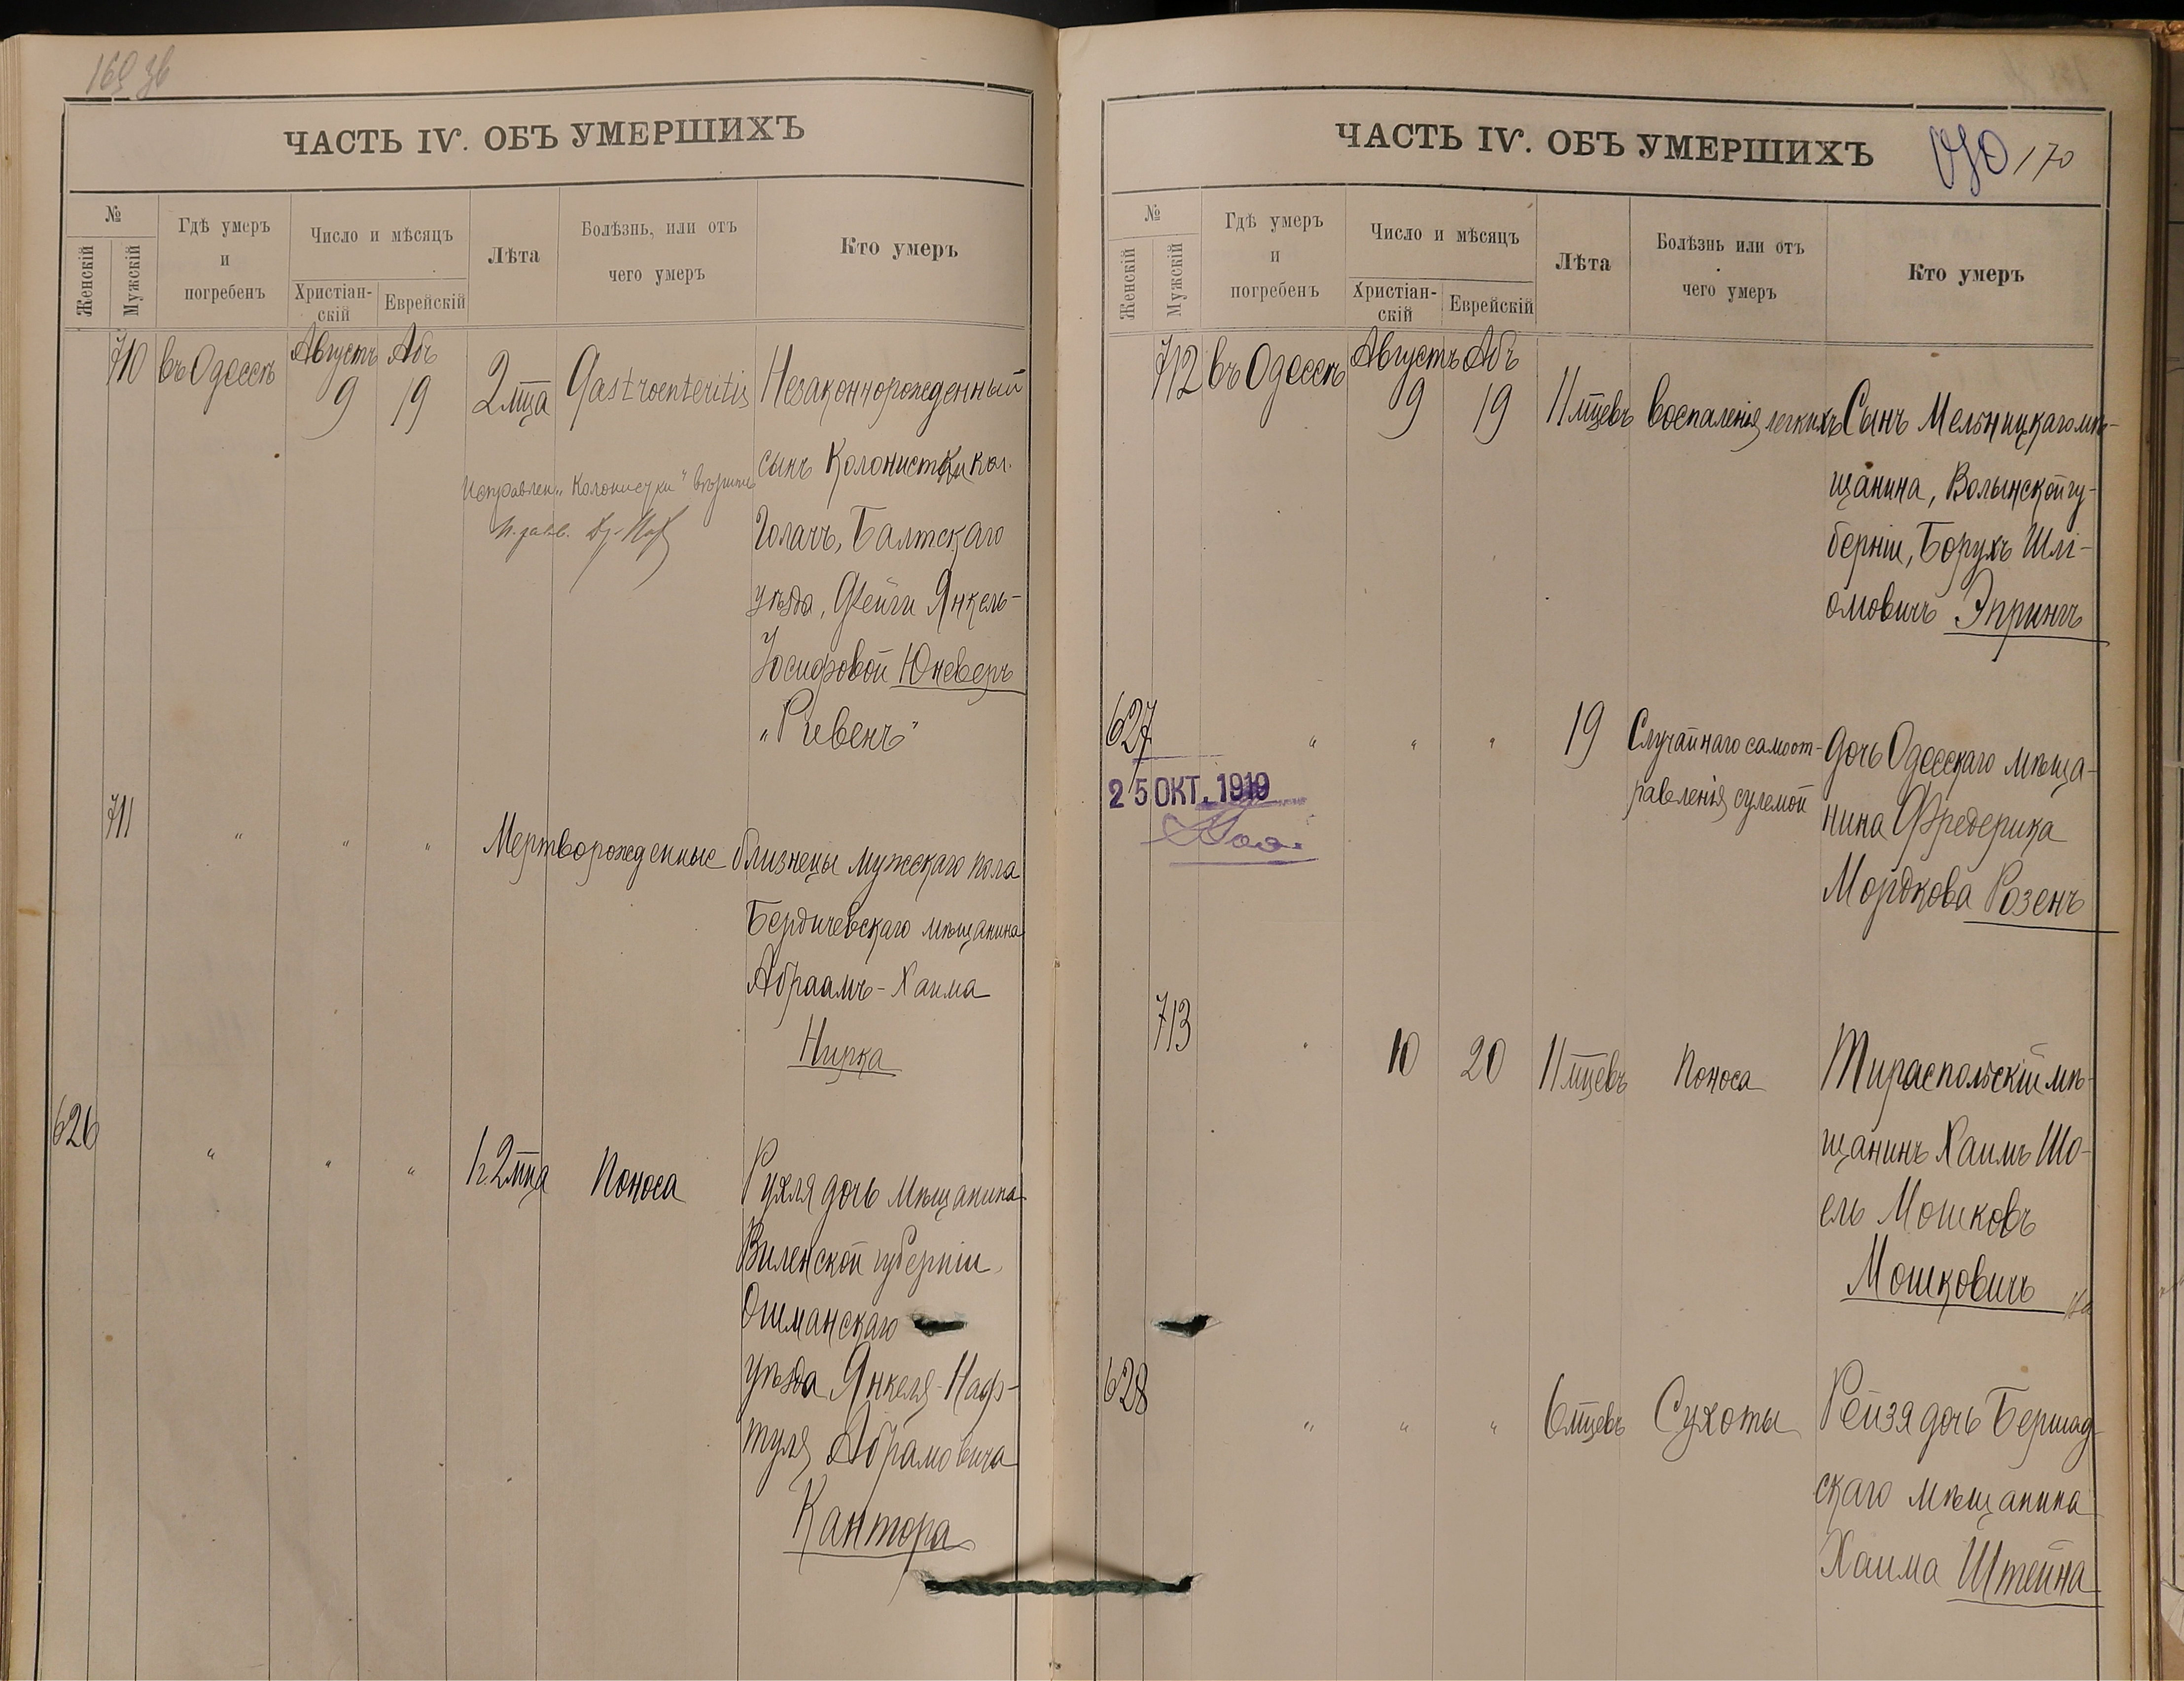 169 зв
ЧАСТЬ IV. ОБЪ УМЕРШИХЪ
№
Женскій
Мужскій
Гдѣ умеръ
и
погребенъ
Число и мѣсяцъ
Христіан-
скій
Еврейскій
Лѣта
Болѣзнь, или отъ
чего умеръ
Кто умеръ
710 въ Одессѣ Августъ 9 Абъ 19 2 мца Gastroenteritis Незаконнорожденный
сынъ Колонистки кол.
Исправлен. „Колонистки" вѣрить
Голачъ, Балтскаго
уѣзда, Фейги Янкель-
Іосифовой Юневеръ
„Рувенъ"
711 " " " Мертворожденные близнецы мужскаго пола
Бердичевскаго мѣщанина
Абраамъ-Хаима
Нирка
626 " " " 1 г. 2 мца Поноса Рухля дочь мѣщанина
Виленской губерніи,
Ошманскаго
уѣзда Янкеля-Наф-
туля Абрамовича
Кантора
ЧАСТЬ IV. ОБЪ УМЕРШИХЪ
170
№
Женскій
Мужскій
Гдѣ умеръ
и
погребенъ
Число и мѣсяцъ
Христіан-
скій
Еврейскій
Лѣта
Болѣзнь или отъ
чего умеръ
Кто умеръ
712 въ Одессѣ Августъ 9 Абъ 19 11 мцевъ воспаленія легкихъ Сынъ Мельницкаго мѣ-
щанина, Волынской гу-
берніи, Борухъ Шлі-
омовичъ Эпрингъ
627 " " " 19 Случайнаго самоот- дочь Одесскаго мѣща-
равленія сулемой нина Фредерика
25 ОКТ. 1919
Мордкова Розенъ
713 " 10 20 11 мцевъ Поноса Тираспольскій мѣ-
щанинъ Хаимъ Шо-
ель Мошковъ
Мошковичъ
628 " " " 6 мцевъ Сухоты Рейзя дочь Бершад-
скаго мѣщанина
Хаима Штейна